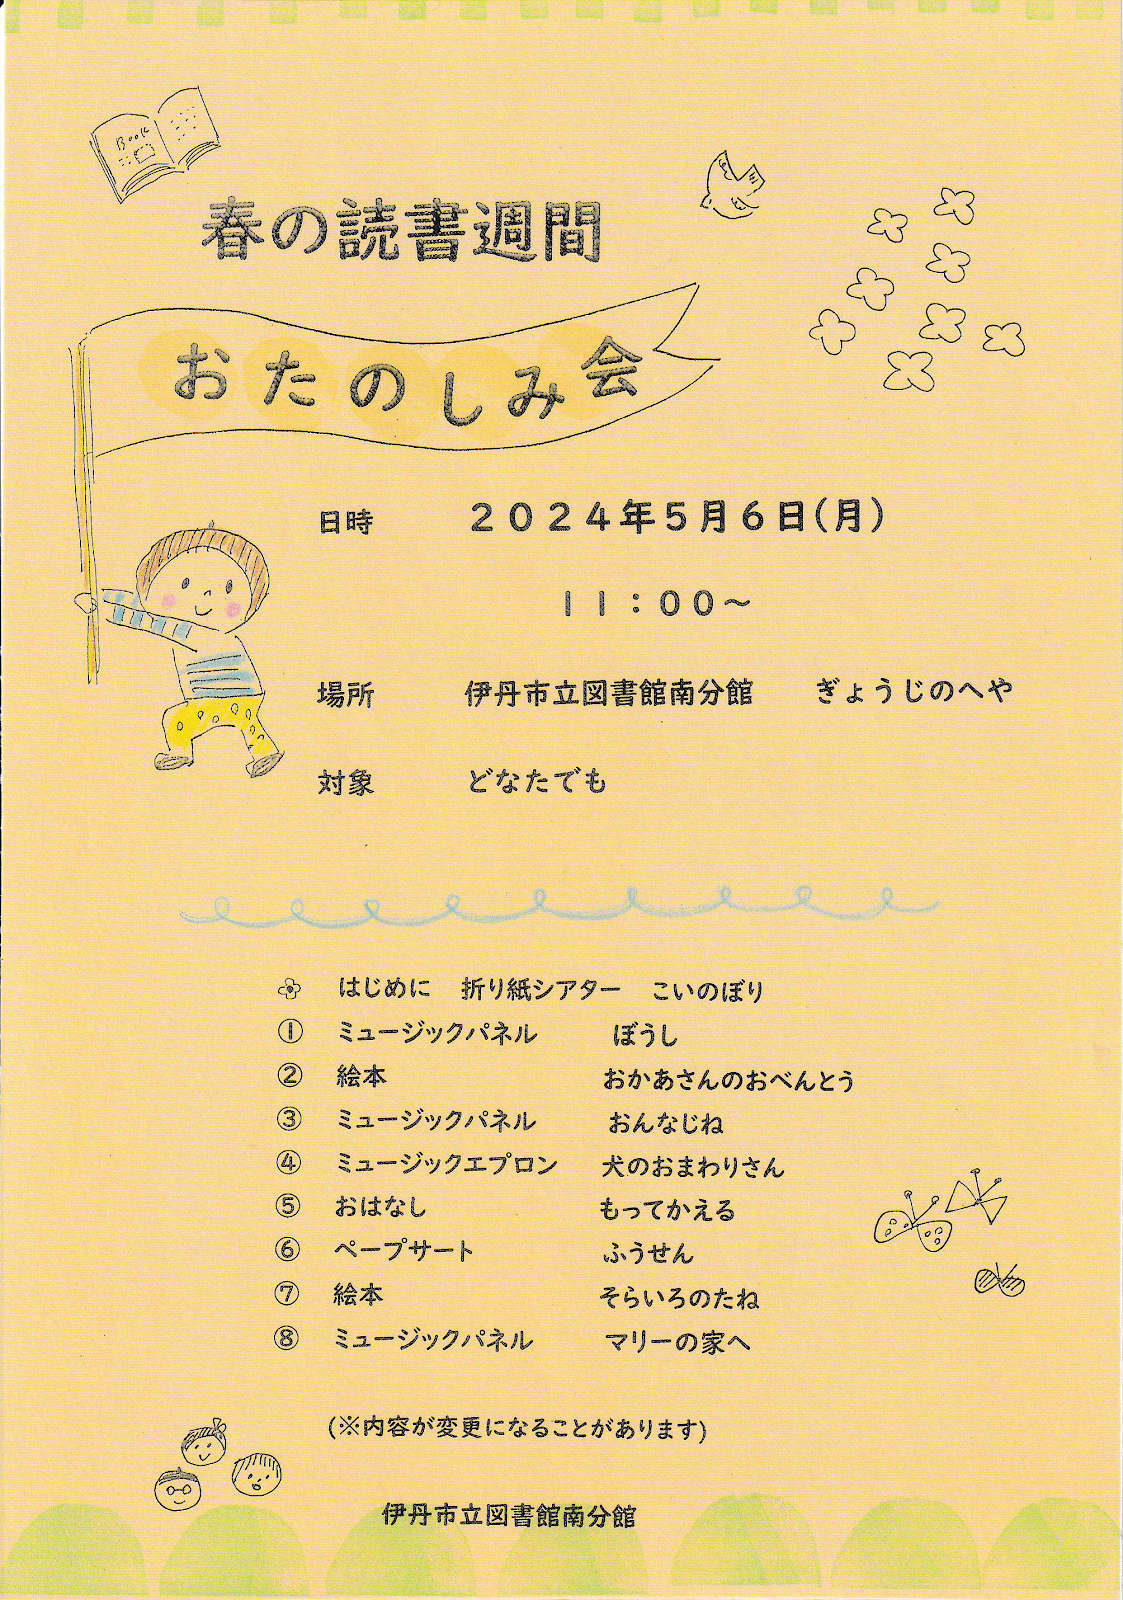 Book
春の読書週間
おたのしみ会
日時　２０２４年５月６日（月）
１１：００～
場所　伊丹市立図書館南分館　ぎょうじのへや
対象　どなたでも
はじめに　折り紙シアター　こいのぼり
① ミュージックパネル　ぼうし
② 絵本　おかあさんのおべんとう
③ ミュージックパネル　おんなじね
④ ミュージックエプロン　犬のおまわりさん
⑤ おはなし　もってかえる
⑥ ペープサート　ふうせん
⑦ 絵本　そらいろのたね
⑧ ミュージックパネル　マリーの家へ
(※内容が変更になることがあります)
伊丹市立図書館南分館